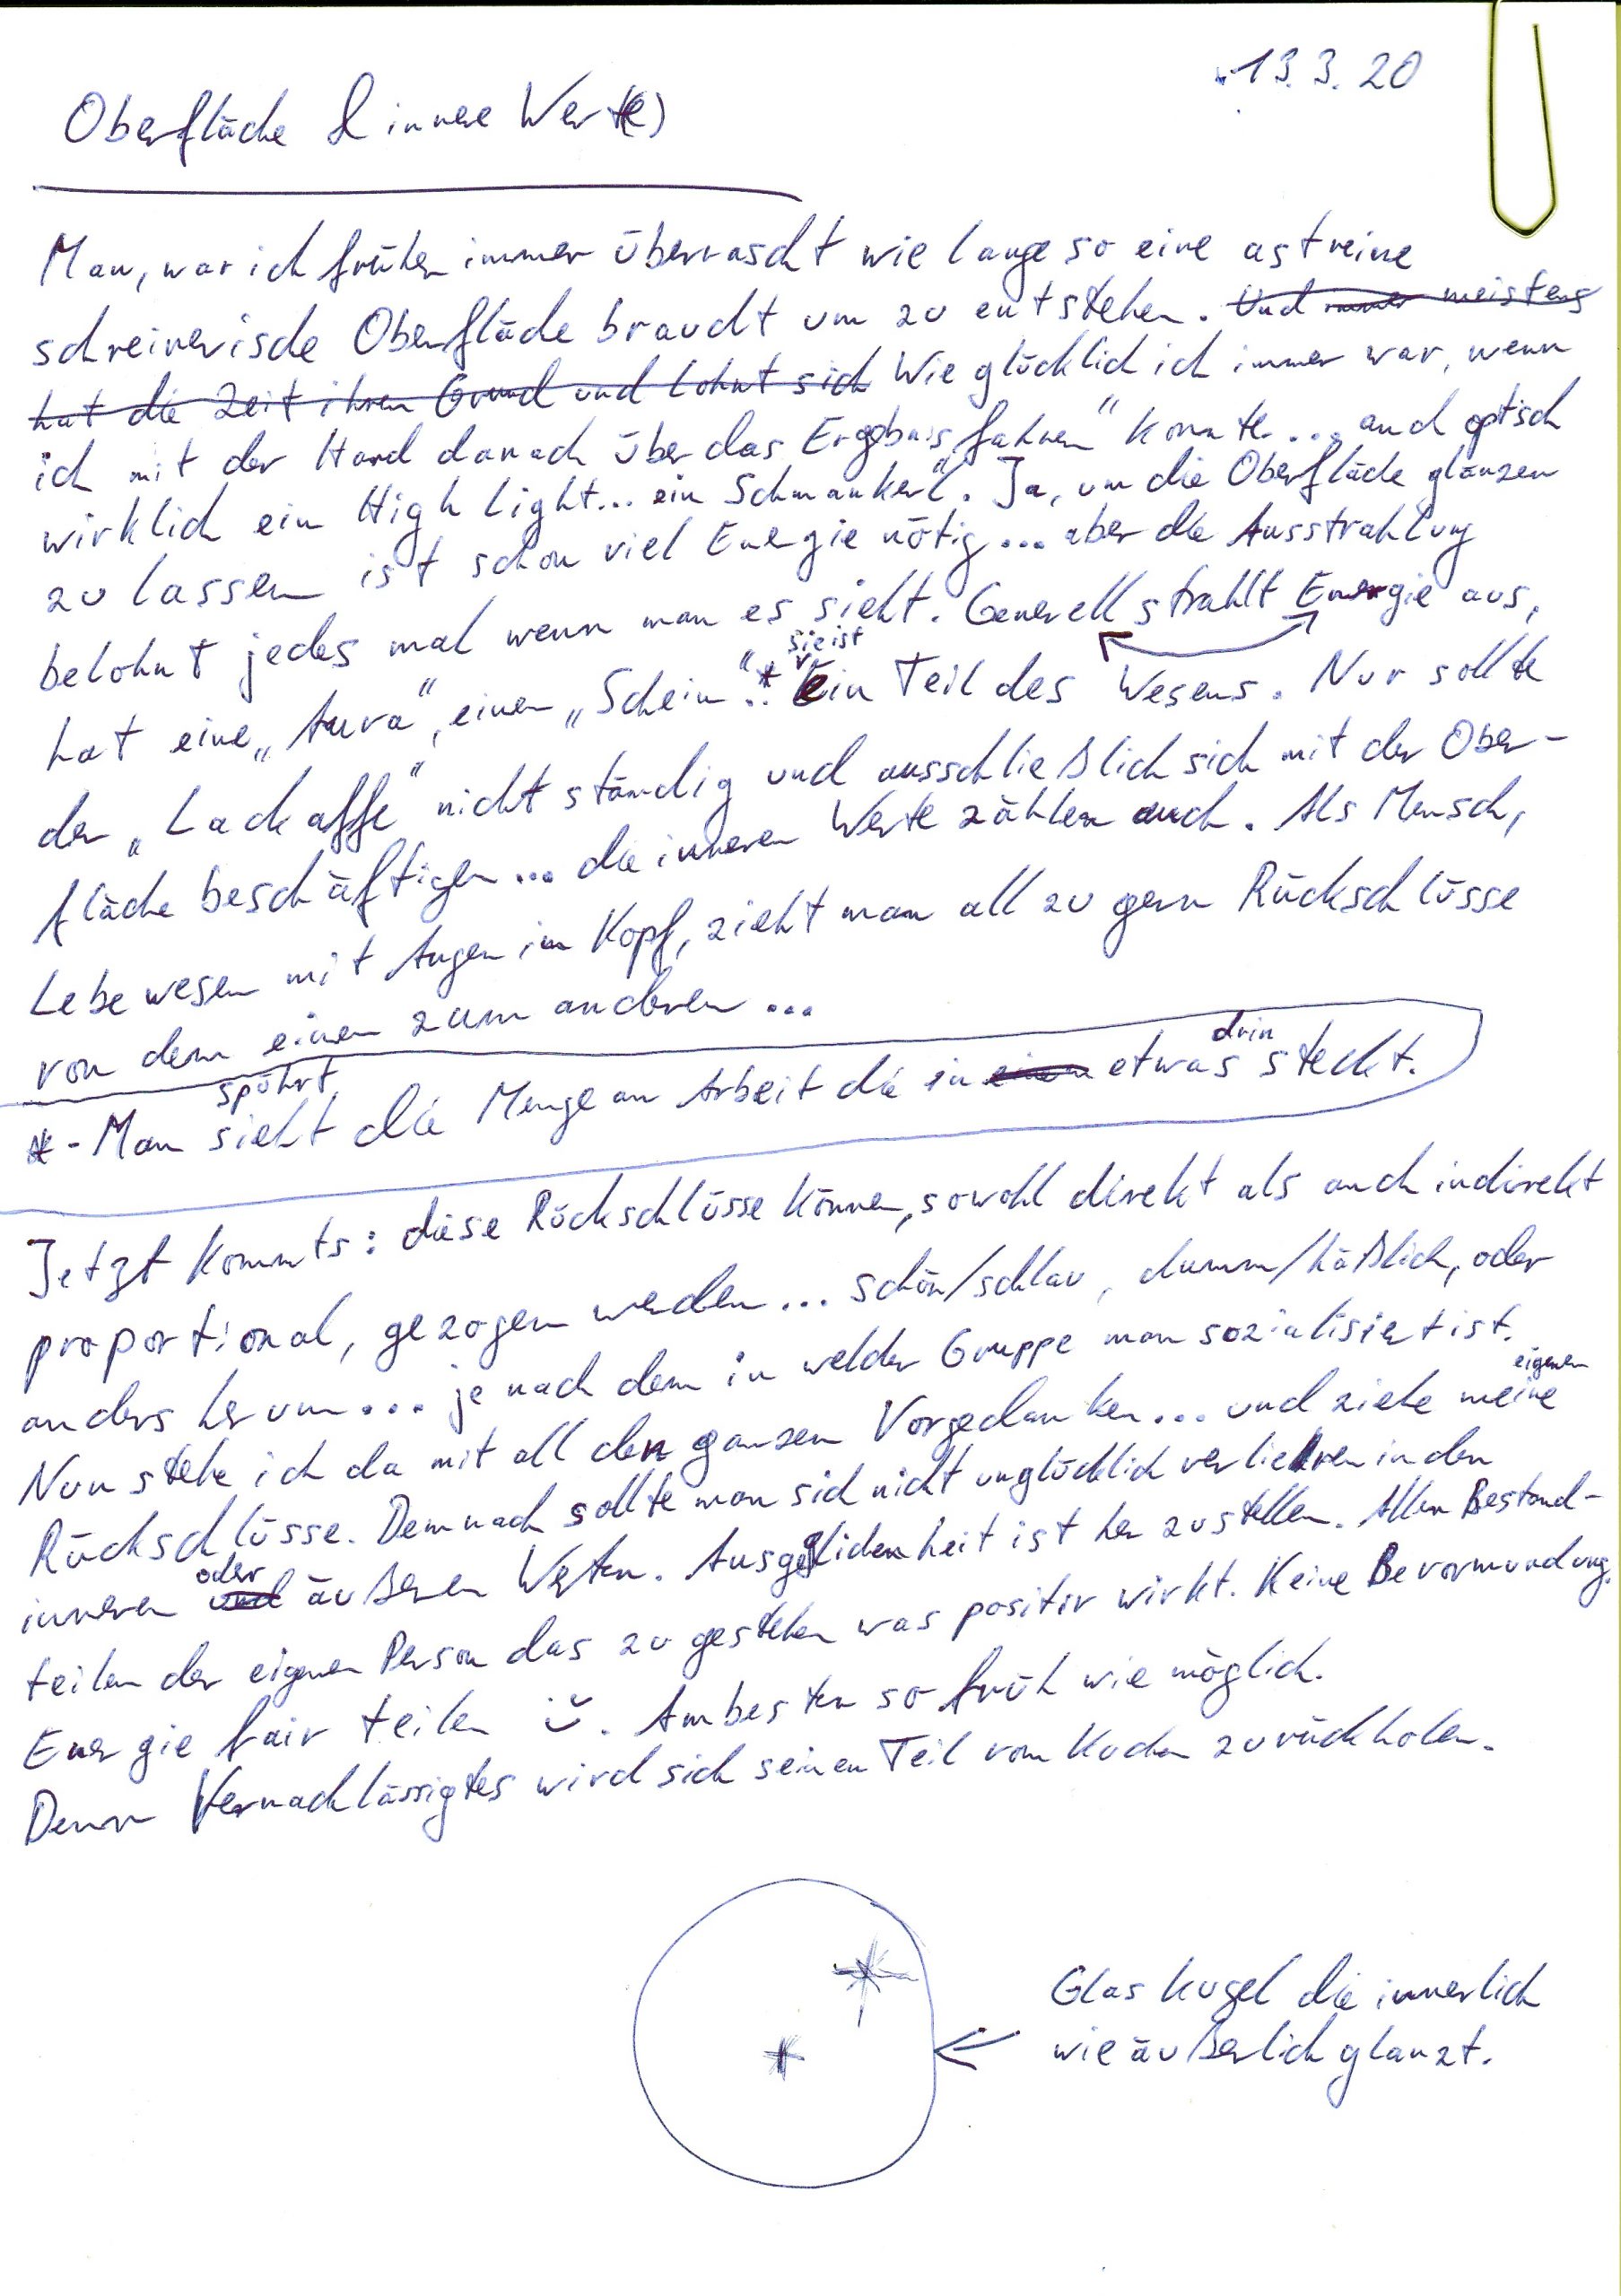 13.3.20
Oberfläche & innere Wert(e)
Man, war ich früher immer überrascht wie lange so eine astreine
schreinerische Oberfläche braucht um zu entstehen. Und immer meistens
hat die Zeit ihren Grund und lohnt sich Wie glücklich ich immer war, wenn
ich mit der Hand danach über das Ergebnis "fahren" konnte... auch optisch
wirklich ein High light... ein Schmankerl. Ja, um die Oberfläche glänzen
zu lassen ist schon viel Energie nötig... aber die Ausstrahlung
belohnt jedes mal wenn man es sieht. Generell strahlt Energie aus,
hat eine „Aura", einen „Schein".* sie ist Ein Teil des Wesens. Nur sollte
der „Lackaffe" nicht ständig und ausschließlich sich mit der Ober-
fläche beschäftigen... die inneren Werte zählen auch. Als Mensch,
Lebewesen mit Augen im Kopf, zieht man all zu gern Rückschlüsse
von dem einen zum anderen...
spührt drin
* - Man sieht die Menge an Arbeit die in einem etwas steckt.
Jetzt kommts: diese Rückschlüsse können, sowohl direkt als auch indirekt
proportional, gezogen werden... schön/schlau, dumm/häßlich, oder
anders herum... je nach dem in welcher Gruppe man sozialisiert ist.
eigenen
Nun stehe ich da mit all den ganzen Vorgedanken... und ziehe meine
Rückschlüsse. Demnach sollte man sich nicht unglücklich verliehren in den
oder
inneren und äußeren Werten. Ausgeglichenheit ist her zustellen. Allen Bestand-
teilen der eigenen Person das zu gestehen was positiv wirkt. Keine Bevormundung.
Energie fair teilen ü. Am besten so früh wie möglich.
Denn Vernachlässigtes wird sich seinen Teil vom Kuchen zurückholen.
Glaskugel die innerlich
wie äußerlich glänzt.